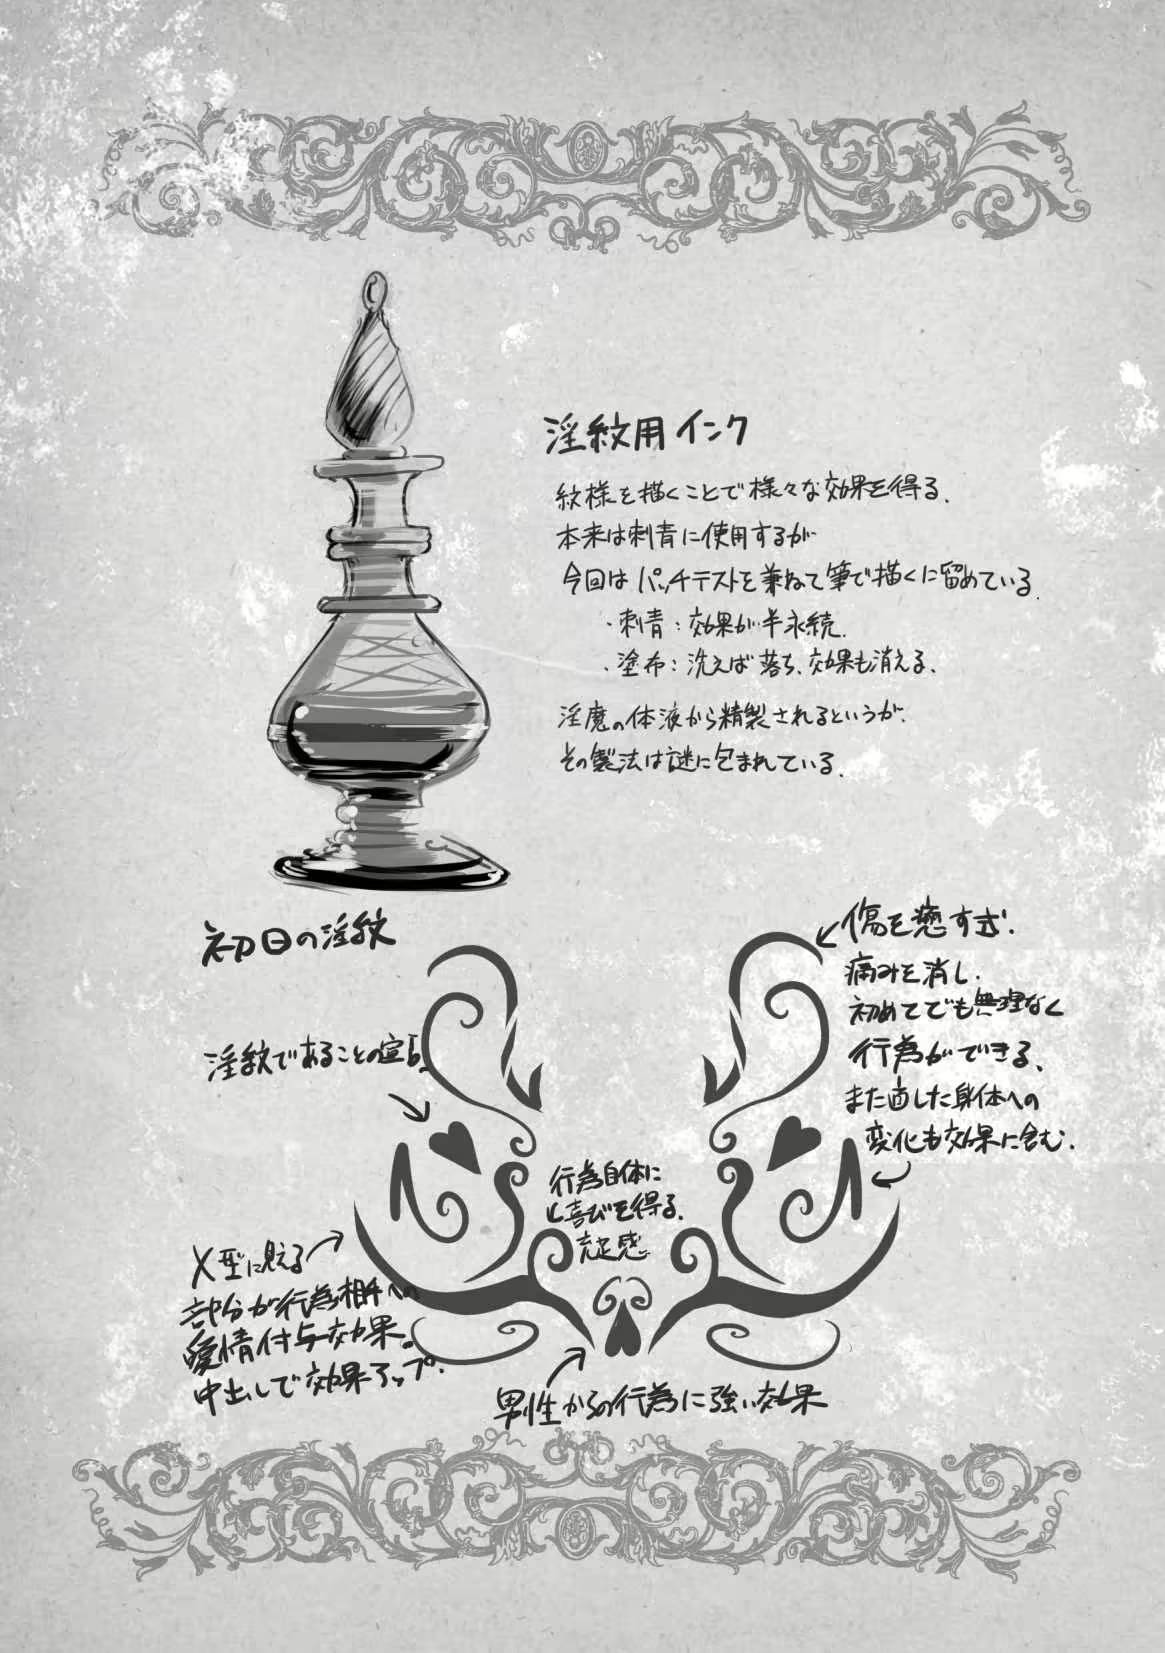 淫紋用インク
紋様を描くことで様々な効果を得る。
本来は刺青に使用するが
今回はパッチテストを兼ねて筆で描くに留めている。
・刺青：効果が半永続。
・塗布：洗えば落ち、効果も消える。
淫魔の体液から精製されるというが、
その製法は謎に包まれている。
初日の淫紋
傷を癒す式。
痛みを消し、
初めてでも無理なく
行為ができる。
また適した身体への
変化も効果に含む。
淫紋であることの宣言。
行為自体に
喜びを得る。
充足感
X型に見える
部分が行為相手への
愛情付与効果。
中出しで効果アップ。
男性からの行為に強い効果